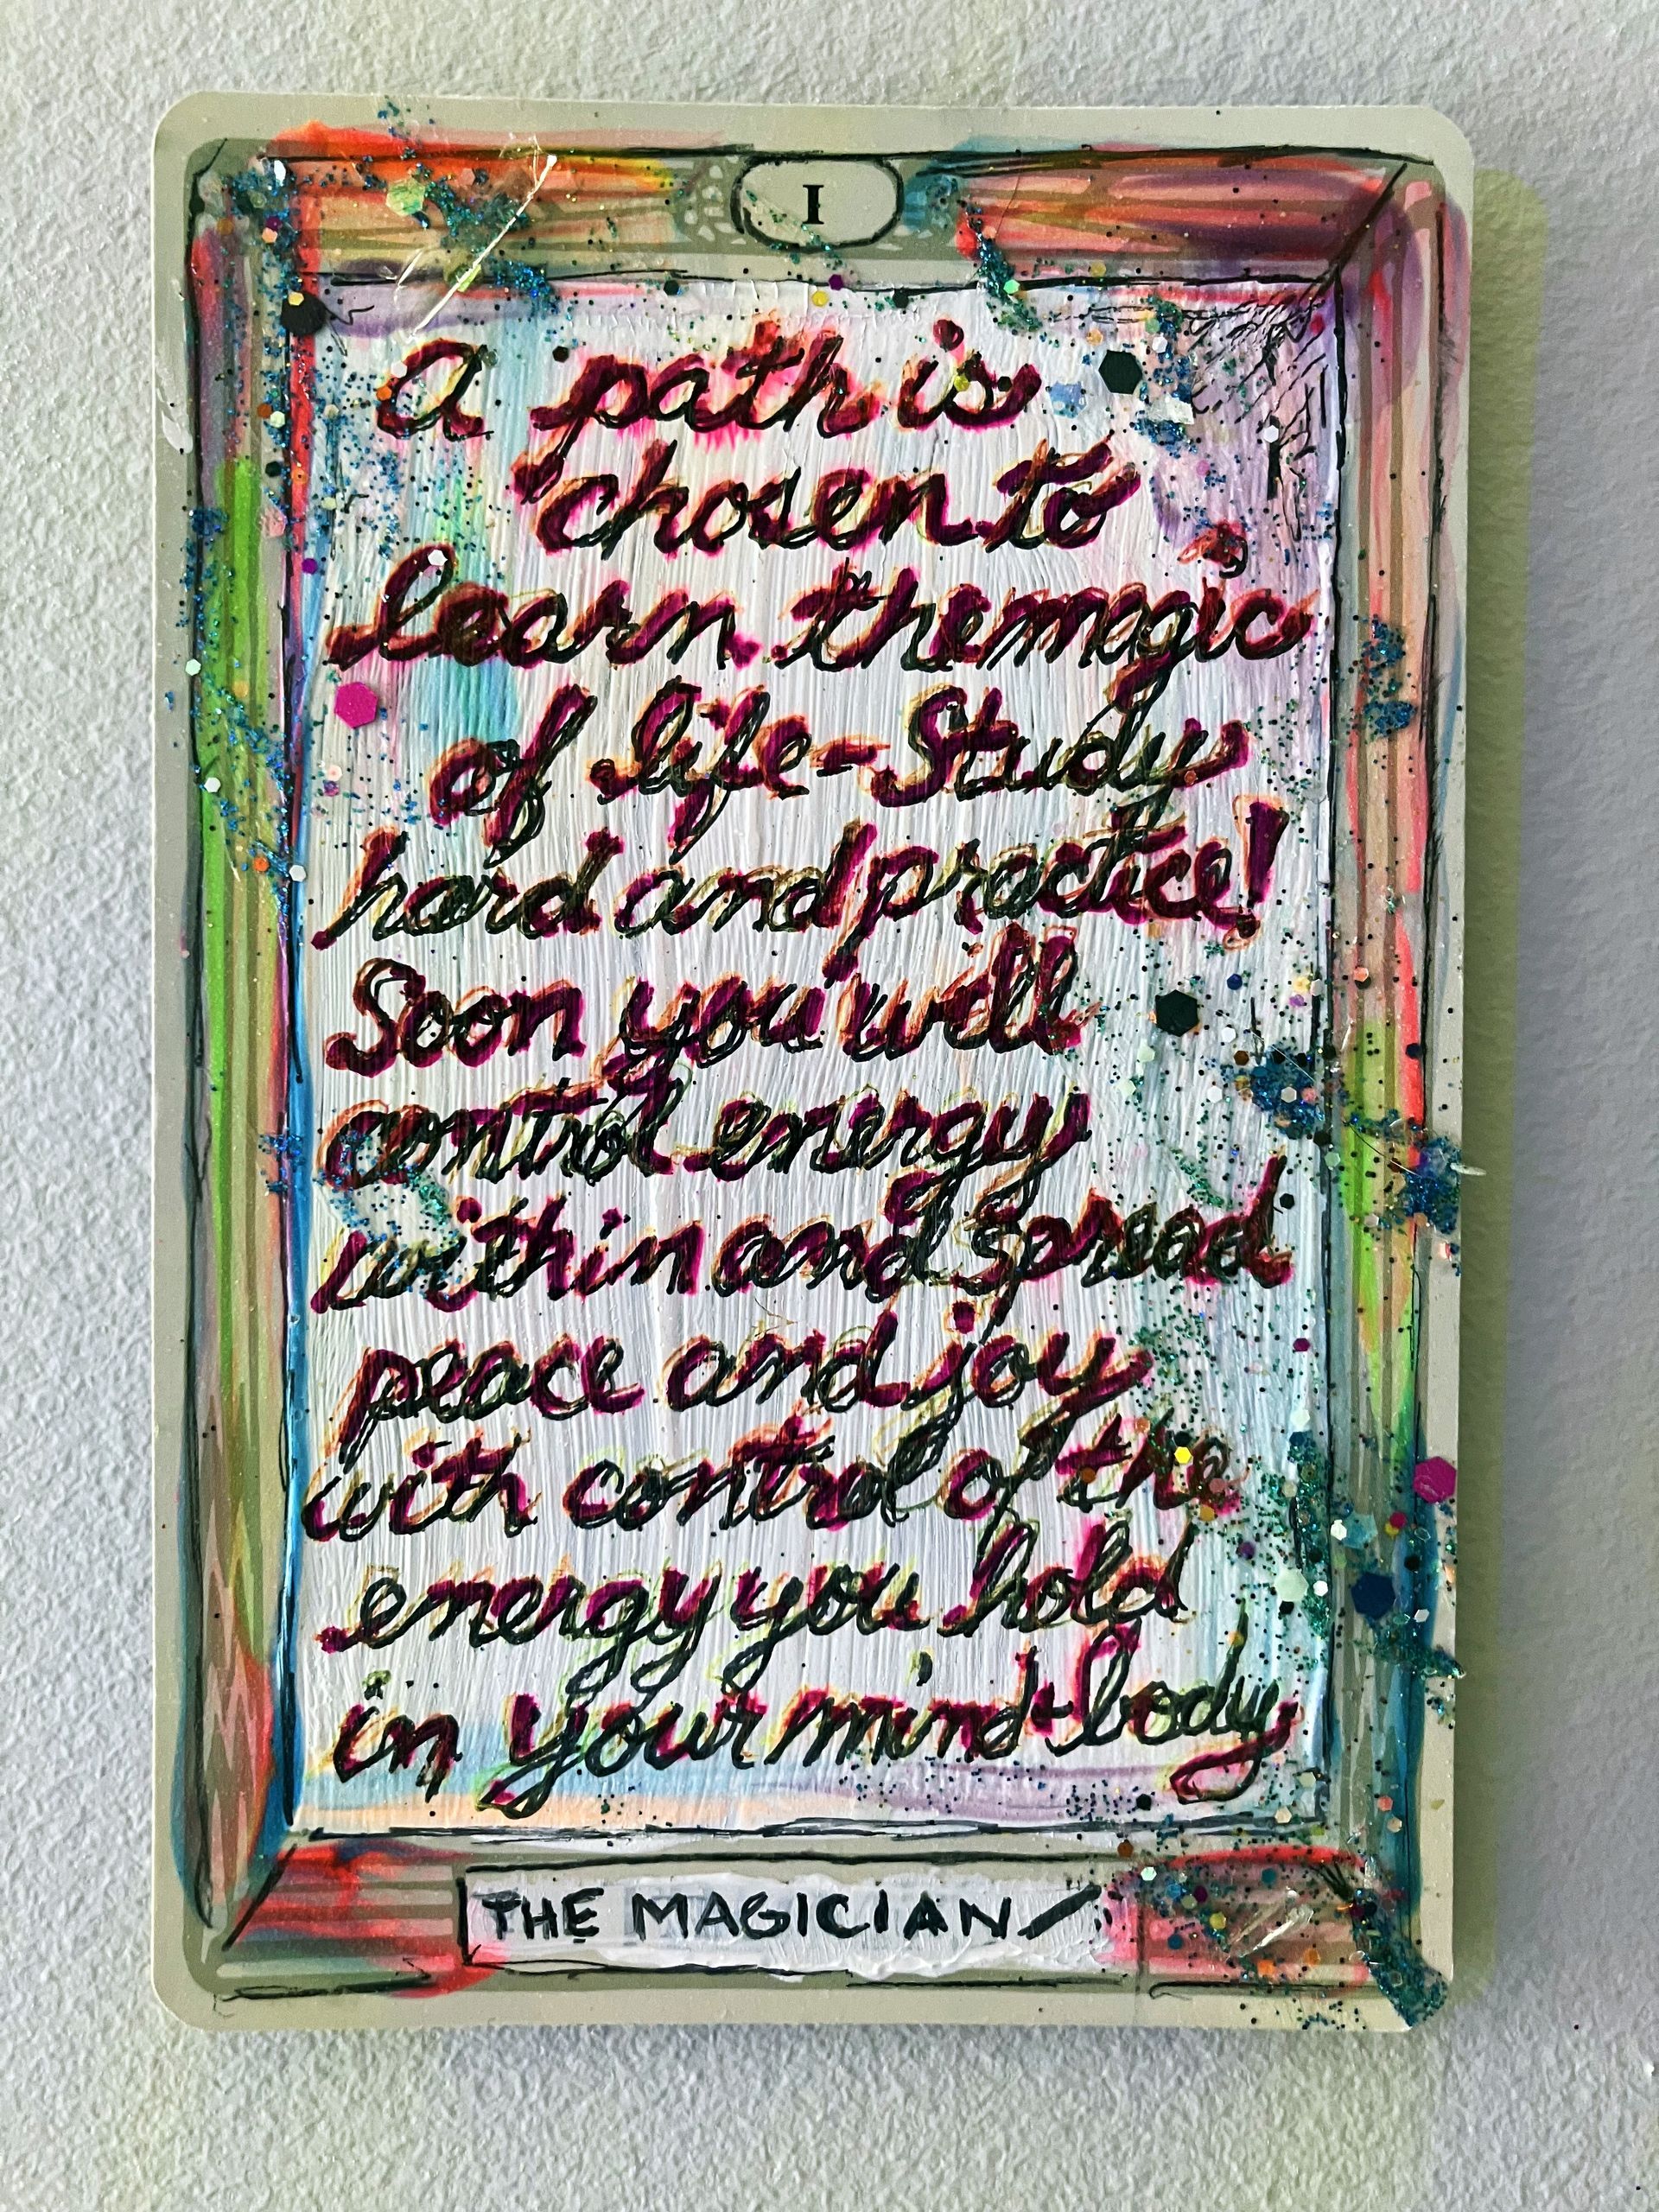 I
a path is
chosen to
learn the magic
of life - Study
hard and practice!
Soon you will
control energy
within and spread
peace and joy
with control of the
energy you hold
in your mind + body
THE MAGICIAN